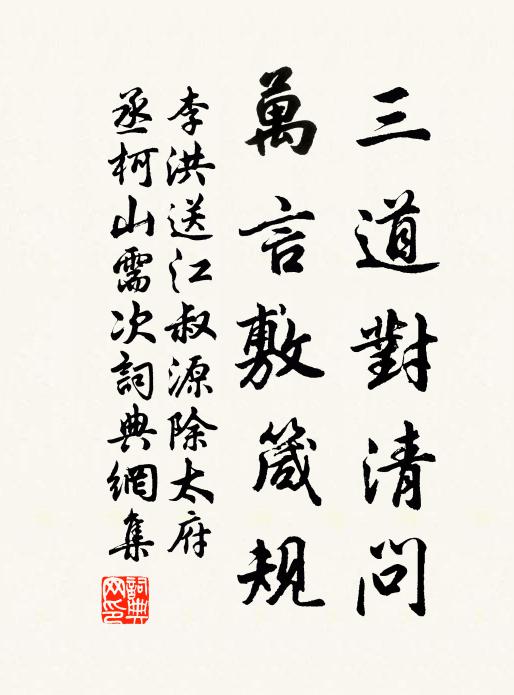 三道對清問
萬言敷箴規
李洪送江叔源除太府
丞柯山需次詞典網集
詞典
网印